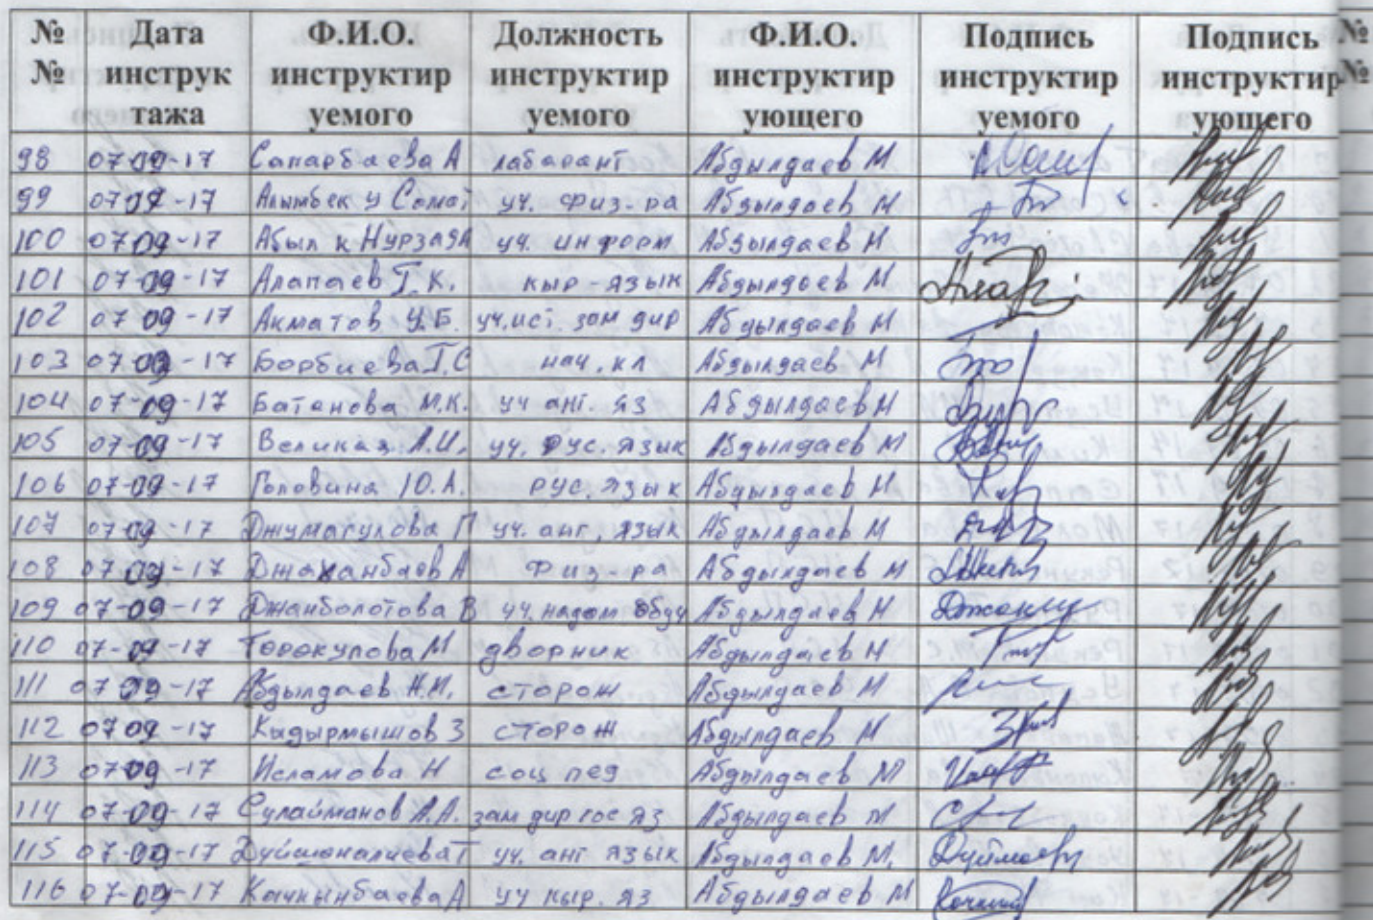 № Дата Ф.И.О. Должность Ф.И.О. Подпись Подпись №
№ инструк инструктир инструктир инструктир инструктир инструктир №
тажа уемого уемого ующего уемого ующего
98 07-09-17 Сапарбаева А лабарант Абдылдаев М
99 07-09-17 Алымбек у Самат уч. физ-ра Абдылдаев М
100 07-09-17 Абыл к Нурзада уч. информ Абдылдаев М
101 07-09-17 Алапаев Т.К. кыр-язык Абдылдаев М
102 07-09-17 Акматов У.Б. уч.ист. зам дир Абдылдаев М
103 07-09-17 Борбиева Г.С нач. кл Абдылдаев М
104 07-09-17 Батанова М.К. уч анг. яз Абдылдаев М
105 07-09-17 Великая Л.И. уч. рус. язык Абдылдаев М
106 07-09-17 Головина Ю.А. рус. язык Абдылдаев М
107 07-09-17 Джумагулова П уч. анг. язык Абдылдаев М
108 07-09-17 Джаханбаев А физ-ра Абдылдаев М
109 07-09-17 Джанболотова В уч. надом обуч Абдылдаев М
110 07-09-17 Торокулова М дворник Абдылдаев М
111 07-09-17 Абдылдаев сторож Абдылдаев М
112 07-09-17 Кыдырмышов З сторож Абдылдаев М
113 07-09-17 Исламова Н соц пед Абдылдаев М
114 07-09-17 Сулайманов А.А. зам дир гос яз Абдылдаев М
115 07-09-17 Дуйшоналиева Т уч. анг язык Абдылдаев М.
116 07-09-17 Качкынбаева А уч кыр. яз Абдылдаев М